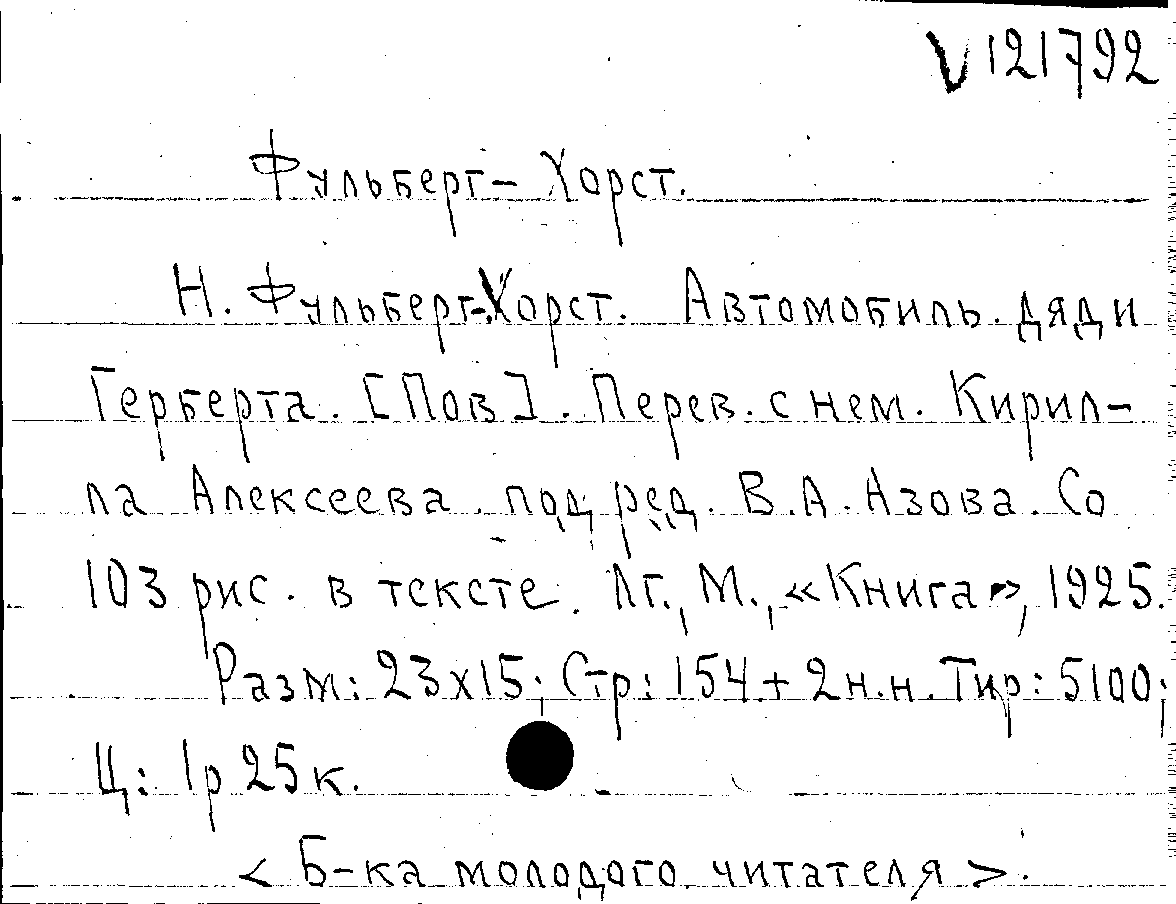 V 121792
Фульберг-Хорст.
Н. Фульберг-Хорст. Автомобиль дяди
Герберта. [Пов]. Перев. с нем. Кирил-
ла Алексеева под ред. В.А. Азова. Со
103 рис. в тексте. Лг., М., «Книга», 1925.
Разм: 23х15; Стр: 154 + 2н.н. Тир: 5100;
Ц: 1р 25к.
< Б-ка молодого читателя >.